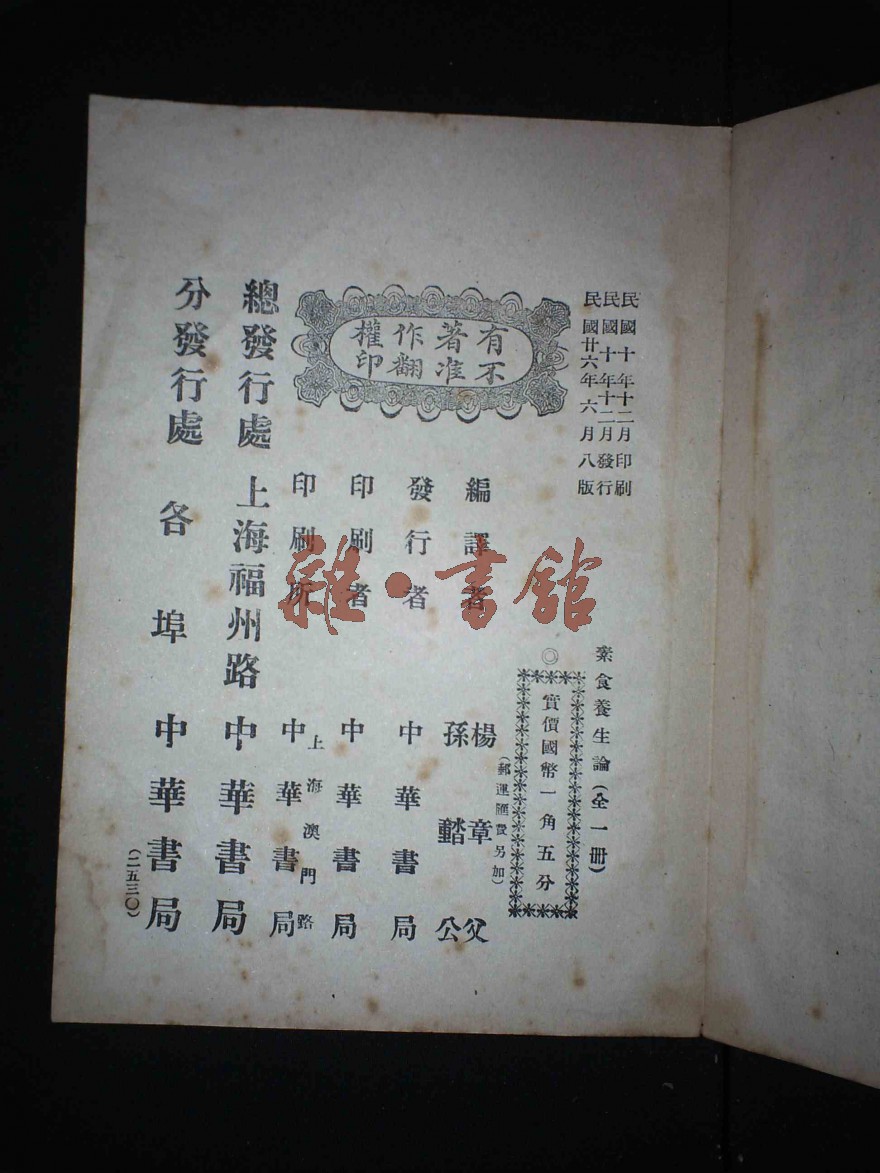 民國十年十二月印刷
民國十年十二月發行
民國廿六年六月八版
素食養生論(全一册)
◎實價國幣一角五分
(郵運匯費另加)
有著作權
不准翻印
編譯者 楊章父
孫蹯公
發行者 中華書局
印刷者 中華書局
印刷所 上海澳門路
中華書局
總發行處 上海福州路 中華書局
分發行處 各埠 中華書局
(二五三〇)
雜·書館